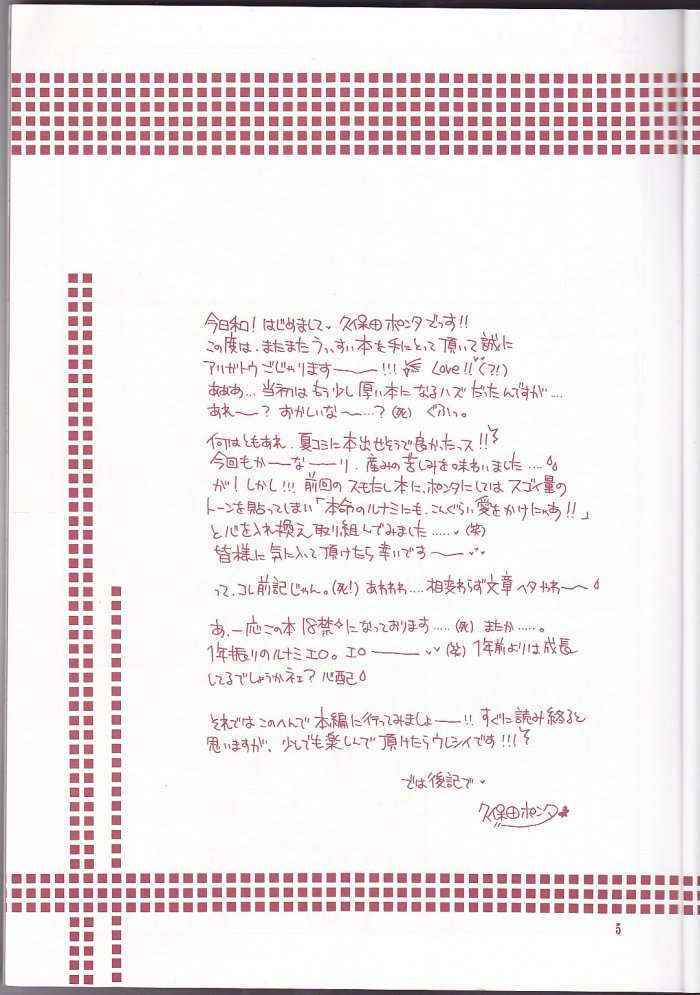 今日和!はじめまして、久保田ポンタでっす!!
この度は、またまたうっすい本を手にとって頂いて誠に
アリガトウごじゃります〜〜!!! Love!!(?!)
あああ…当初はもう少し厚い本になるハズだったんですが…
あれ〜? おかしいな〜…? (死) ぐふっ。
何はともあれ、夏コミに本出せそうで良かったっス!!
今回もか〜な〜り、産みの苦しみを味わいました….
が!しかし!!!前回のスもたし本に、ポンタにしてはスゴイ量の
トーンを貼ってしまい「本命のルナミにも、こんぐらい愛をかけにゃあ!!」
と心を入れ換え取り組んでみました…… (笑)
皆様に気に入って頂けたら幸いです〜〜
って、コレ前記じゃん。(死!) あわわわ….相変わらず文章ヘタやわ〜
あ、一応この本18禁になっております…..(死) またか…..。
1年振りのルナミエロ。エロ〜〜 (笑) 1年前よりは成長
してるでしょうかネェ? 心配
それではこのへんで本編に行ってみましょーー!! すぐに読み終ると
思いますが、少しでも楽しんで頂けたらウレシイです!!!
では後記で
久保田ポンタ
5